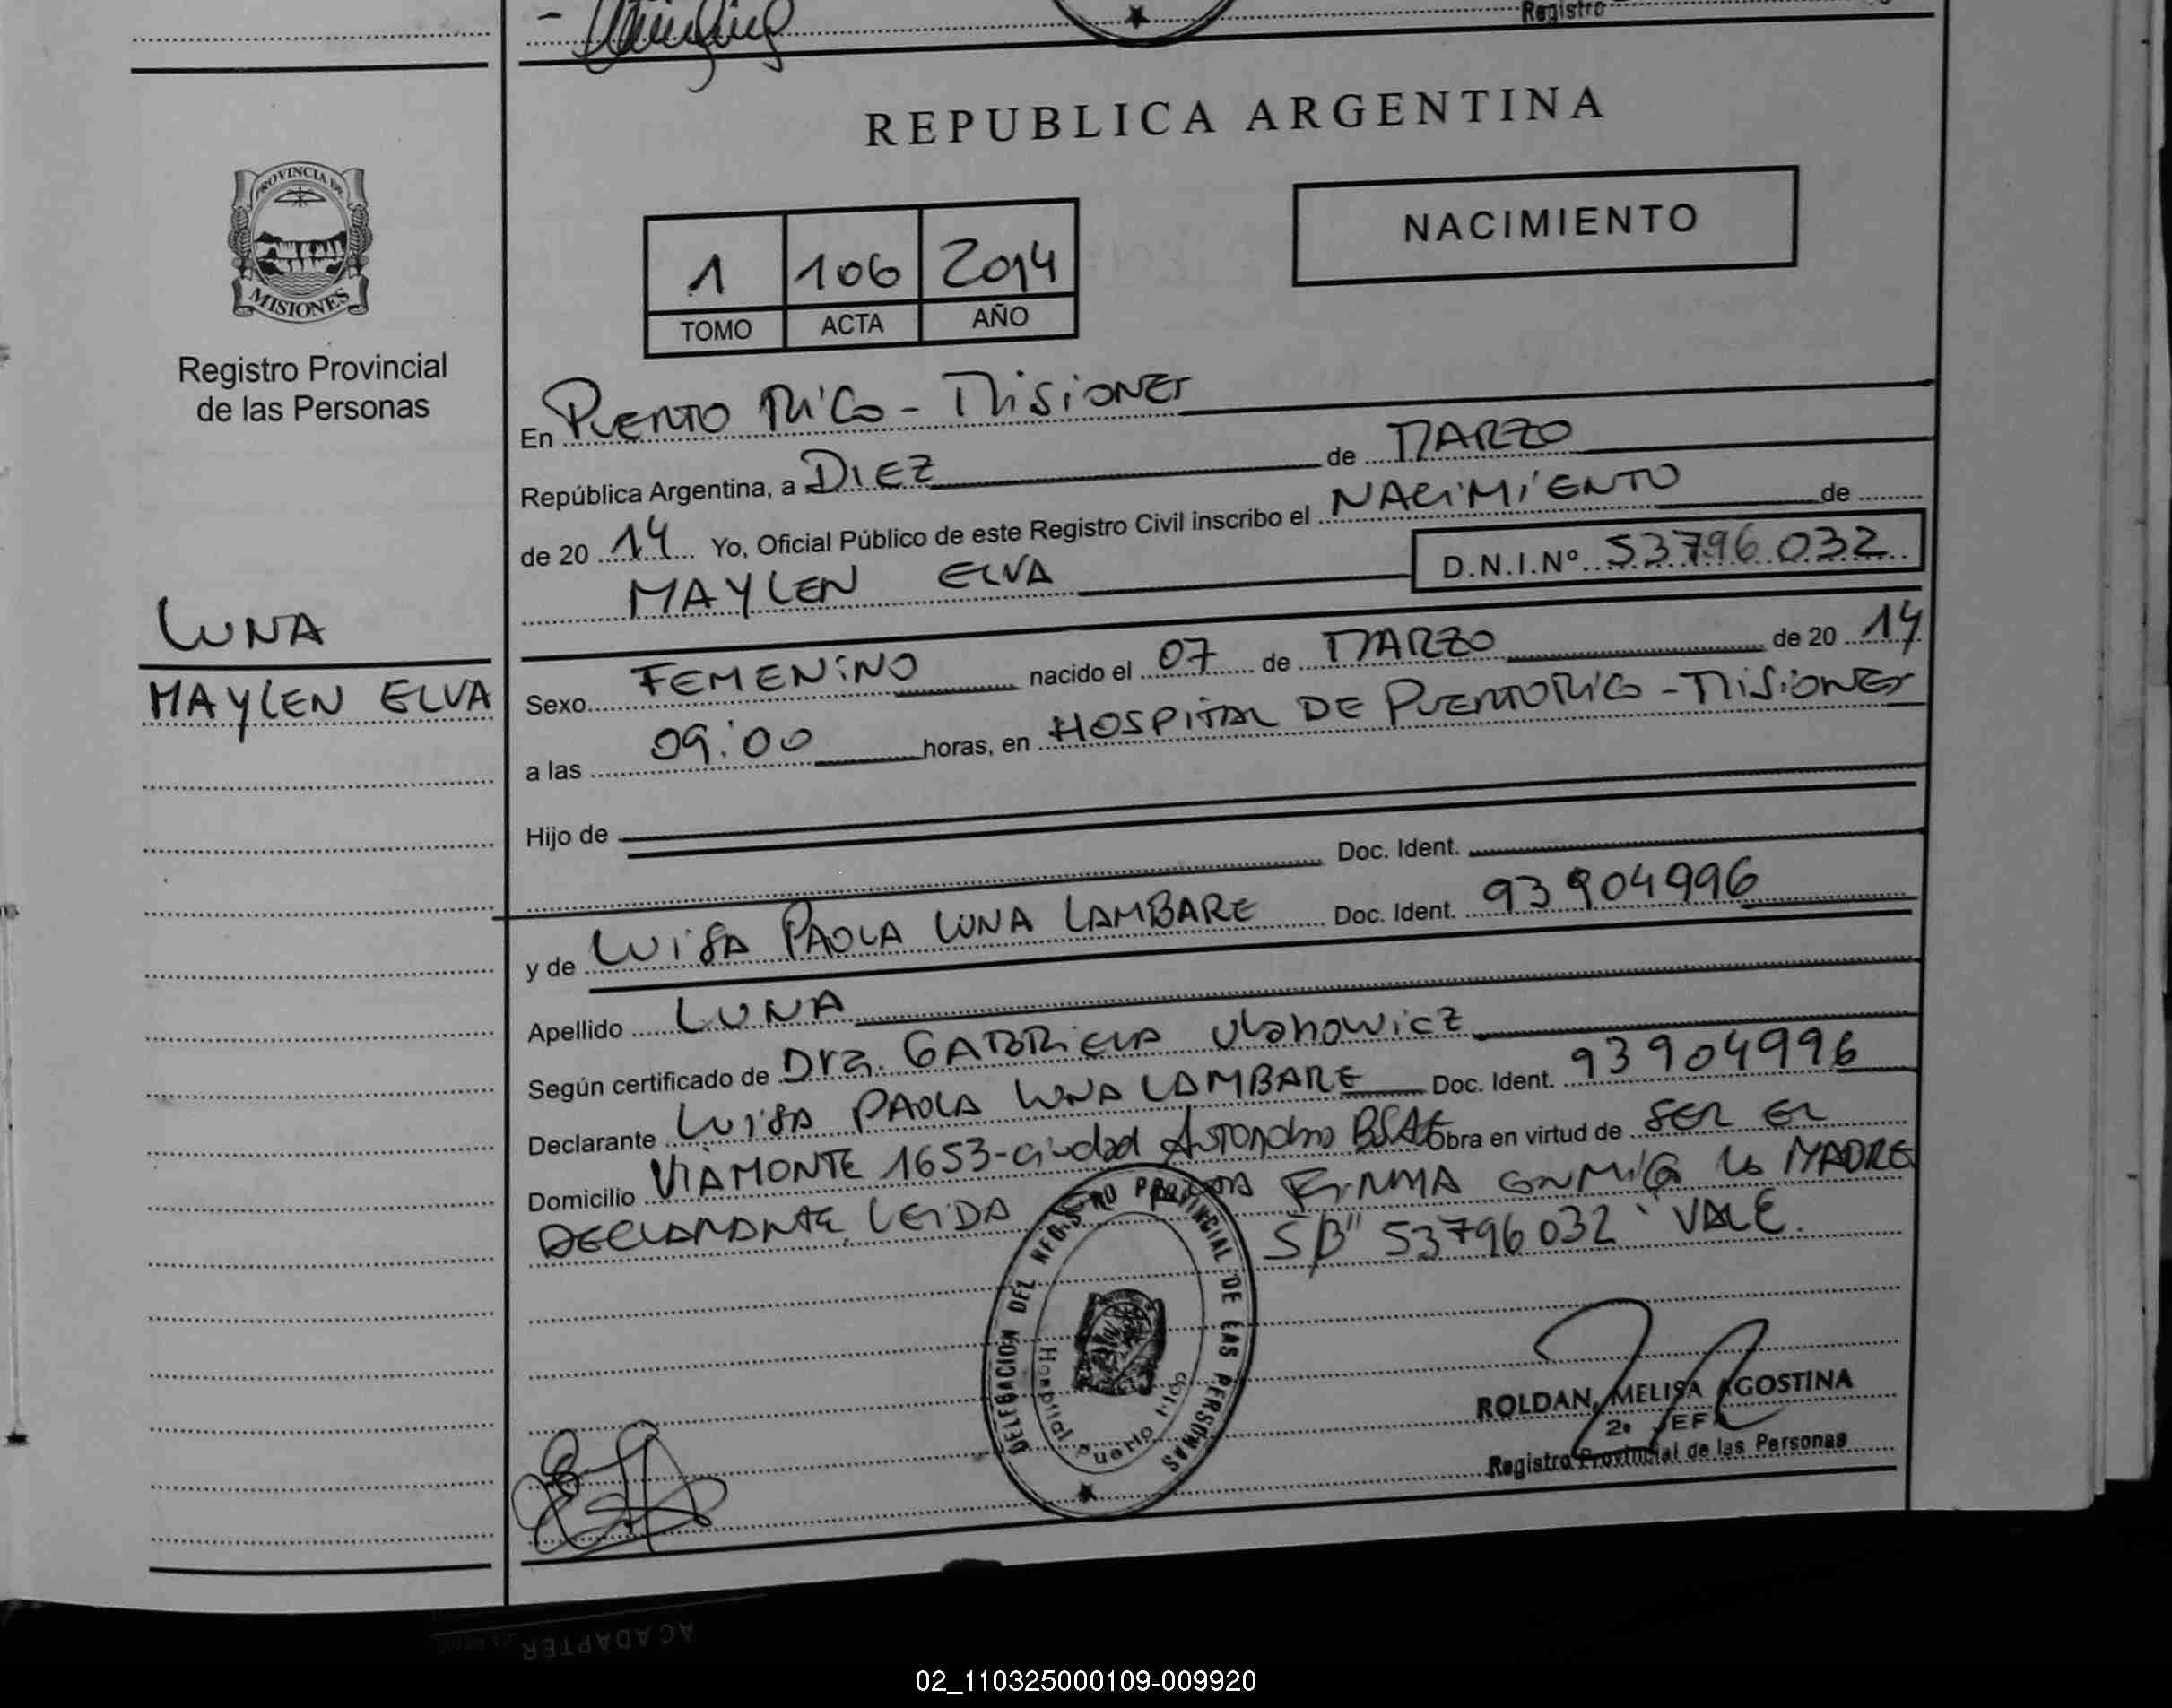 Registro
REPUBLICA ARGENTINA
PROVINCIA DE
MISIONES
Registro Provincial
de las Personas
NACIMIENTO
1 106 2014
TOMO ACTA AÑO
En PUERTO RICO - MISIONES
República Argentina, a DIEZ de MARZO
de 20 14 Yo, Oficial Público de este Registro Civil inscribo el NACIMIENTO de
MAYLEN ELVA D.N.I.Nº 53796032
LUNA
MAYLEN ELVA
Sexo FEMENINO nacido el 07 de MARZO de 20 14
a las 09:00 horas, en HOSPITAL DE PUERTO RICO - MISIONES
Hijo de
Doc. Ident.
y de LUISA PAOLA LUNA LAMBARE Doc. Ident. 93904996
Apellido LUNA
Según certificado de Dra. GABRIELA Ulanowicz
Declarante LUISA PAOLA LUNA LAMBARE Doc. Ident. 93904996
Domicilio VIAMONTE 1653-ciudad Autonoma BSAS Obra en virtud de SER EL
DECLARANTE LEIDA FIRMA CONMIGO LA MADRE
S/B" 53796032" VALE.
DELEGACION DEL REGISTRO PROVINCIAL DE LAS PERSONAS
Hospital Puerto Rico
ROLDAN, MELISA AGOSTINA
2º JEFA
Registro Provincial de las Personas
AC ADAPTER
02_110325000109-009920